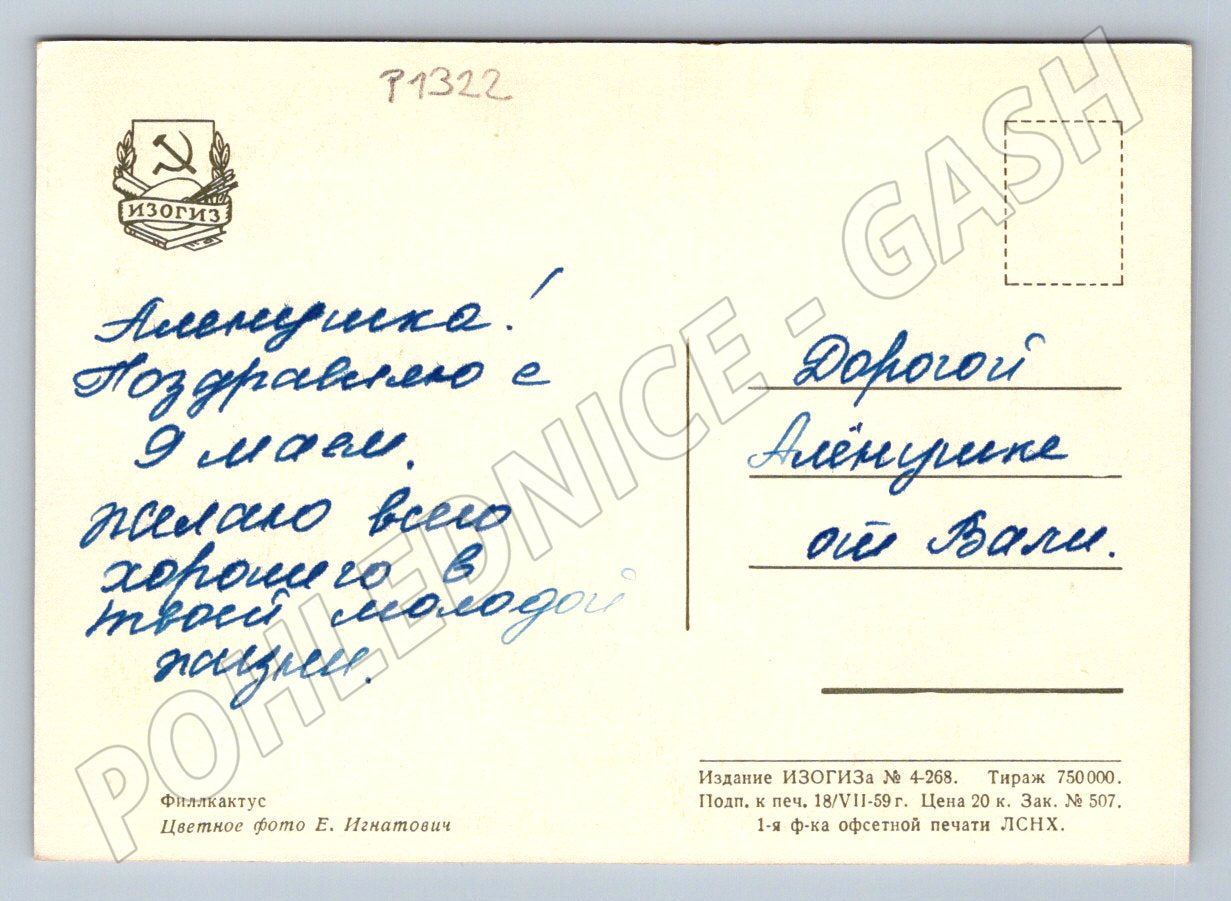 P1322
ИЗОГИЗ
Аленушка!
Поздравляю с
9 маем.
желаю всего
хорошего в
твоей молодой
жизни.
Дорогой
Алёнушке
от Вали.
Филлкактус
Цветное фото Е. Игнатович
Издание ИЗОГИЗа № 4-268. Тираж 750000.
Подп. к печ. 18/VII-59 г. Цена 20 к. Зак. № 507.
1-я ф-ка офсетной печати ЛСНХ.
POHLEDNICE - GASH